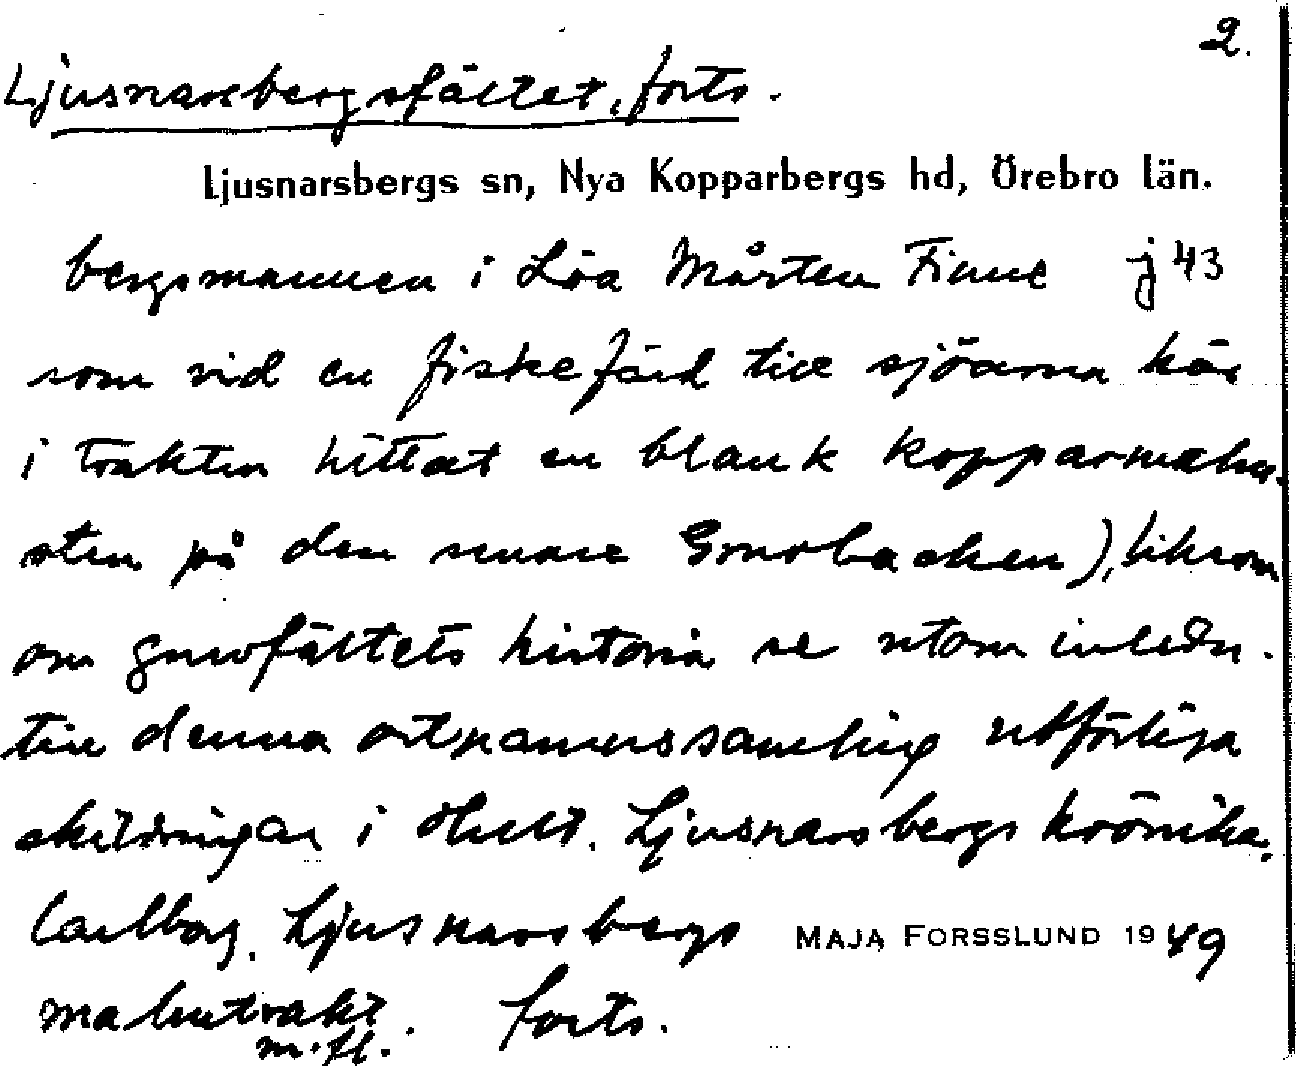 2.
Ljusnarsbergsfältet, forts.
Ljusnarsbergs sn, Nya Kopparbergs hd, Örebro län.
bergsmannen i Löa Mårten Finne j 43
som vid en fiskefärd till sjöarna här
i trakten hittat en blank kopparmalm-
sten på den senare Gruvbacken), liksom
om gruvfältets historia se utom inledn.
till denna ortnamnssamling utförliga
skildringar i Hult. Ljusnarsbergs krönika.
Carlborg, Ljusnarsbergs MAJA FORSSLUND 1949
malmtrakt. forts.
m. fl.